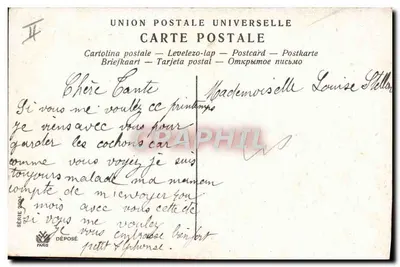 II
UNION POSTALE UNIVERSELLE
CARTE POSTALE
Cartolina postale — Levelezo-lap — Postcard — Postkarte
Briefkaart — Tarjeta postal — Открытое письмо
Chère Tante
Si vous me voulez ce printemps
je viens avec vous pour
garder les cochons car
comme vous voyez je suis
toujours malade ma maman
compte de m'envoyer
mois avec vous cette été
si vous me voulez
Je vous embrasse bien fort
petit Alphonse
Mademoiselle Louise
CARTE POSTALE
SÉRIE
PARIS
DÉPOSÉ